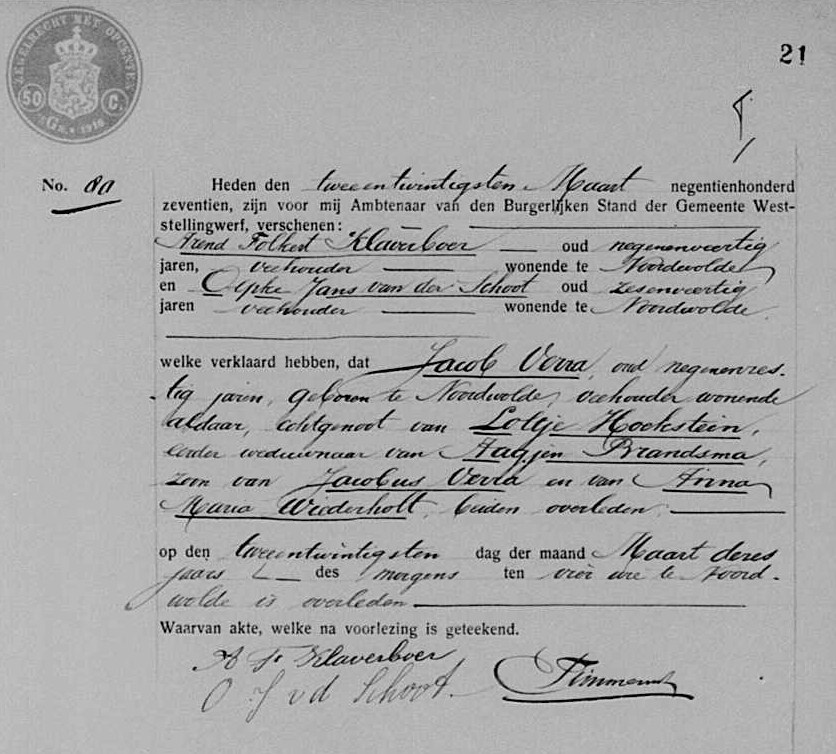 ZEGELRECHT MET OPCENTEN
50 C.
21
No. 80
Heden den tweeentwintigsten Maart negentienhonderd
zeventien, zijn voor mij Ambtenaar van den Burgerlijken Stand der Gemeente West-
stellingwerf, verschenen:
Arend Folkert Klaverboer oud negenenveertig
jaren, veehouder wonende te Noordwolde
en Opke Jans van der Schoot oud zesenveertig
jaren veehouder wonende te Noordwolde
welke verklaard hebben, dat Jacob Verra, oud negenenzes-
tig jaren, geboren te Noordwolde, veehouder wonende
aldaar, echtgenoot van Loltje Hoekstein,
eerder weduwnaar van Aagjen Brandsma,
zoon van Jacobus Verra en van Anna
Maria Wiederholt, beiden overleden
op den tweeentwintigsten dag der maand Maart dezes
jaars des morgens ten vier ure te Noord-
wolde is overleden
Waarvan akte, welke na voorlezing is geteekend.
A F Klaverboer
O J v d Schoot.